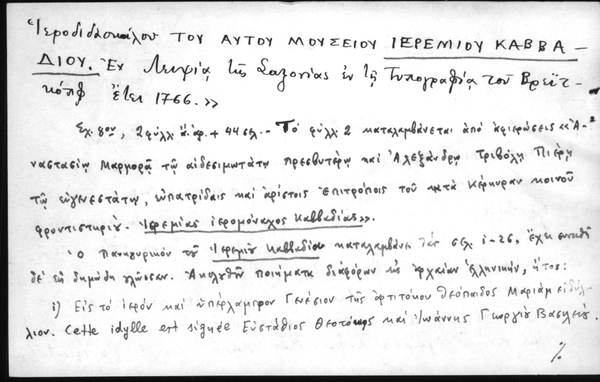 Ἱεροδιδασκάλου ΤΟΥ ΑΥΤΟΥ ΜΟΥΣΕΙΟΥ ΙΕΡΕΜΙΟΥ ΚΑΒΒΑ-
ΔΙΟΥ. Ἐν Λειψίᾳ τῆς Σαξονίας ἐν τῇ Τυπογραφίᾳ τοῦ Βρεϊτ-
κόπφ ἔτει 1766.»
Σχ. 8ον, 2 φύλλ. ἄ. ἀρ. + 44 σελ. - Τὸ φύλλ. 2 καταλαμβάνεται ἀπὸ ἀφιερώσεις «Ἀ-
ναστασίῳ Μαρμορᾷ τῷ αἰδεσιμωτάτῳ πρεσβυτέρῳ καὶ Ἀλεξάνδρῳ Τριβώλῃ Πιέρῃ
τῷ εὐγενεστάτῳ, εὐπατρίδαις καὶ ἀρίστοις ἐπιτρόποις τοῦ κατὰ Κέρκυραν κοινοῦ
φροντιστηρίου. Ἱερεμίας ἱερομόναχος Καββαδίας».
Ὁ Πανηγυρικὸν τοῦ Ἱερεμίου Καββαδίου καταλαμβάνει τὰς σελ. 1-26, ἔχει συντεθῆ
δὲ εἰς δημώδη γλῶσσαν. Ἀκολουθοῦν ποιήματα διάφορα εἰς ἀρχαίαν ἑλληνικήν, ἤτοι:
i) Εἰς τὸ ἱερὸν καὶ ὑπέρλαμπρον Γενέσιον τῆς ἀρτιτόκου θεόπαιδος Μαριὰμ εἰδύλ-
λιον. Cette idylle est signée Εὐστάθιος Θεοτόκης καὶ Ἰωάννης Γεωργίου Βασιλείου.
%